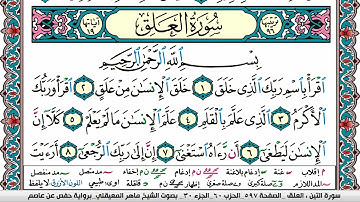 ترتيبها ٩٦ سُورَةُ الْعَلَقِ آياتها ١٩
بِسْمِ اللَّهِ الرَّحْمَٰنِ الرَّحِيمِ
اقْرَأْ بِاسْمِ رَبِّكَ الَّذِي خَلَقَ ١ خَلَقَ الْإِنسَانَ مِنْ عَلَقٍ ٢ اقْرَأْ وَرَبُّكَ
الْأَكْرَمُ ٣ الَّذِي عَلَّمَ بِالْقَلَمِ ٤ عَلَّمَ الْإِنسَانَ مَا لَمْ يَعْلَمْ ٥ كَلَّا إِنَّ
الْإِنسَانَ لَيَطْغَىٰ ٦ أَن رَّآهُ اسْتَغْنَىٰ ٧ إِنَّ إِلَىٰ رَبِّكَ الرُّجْعَىٰ ٨ أَرَأَيْتَ
سورة التين ، العلق . الصفحة ٥٩٧ الحزب ٦٠ . الجزء ٣٠ . بصوت الشيخ ماهر المعيقلي . برواية حفص عن عاصم